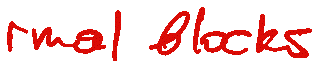 rmal blocks